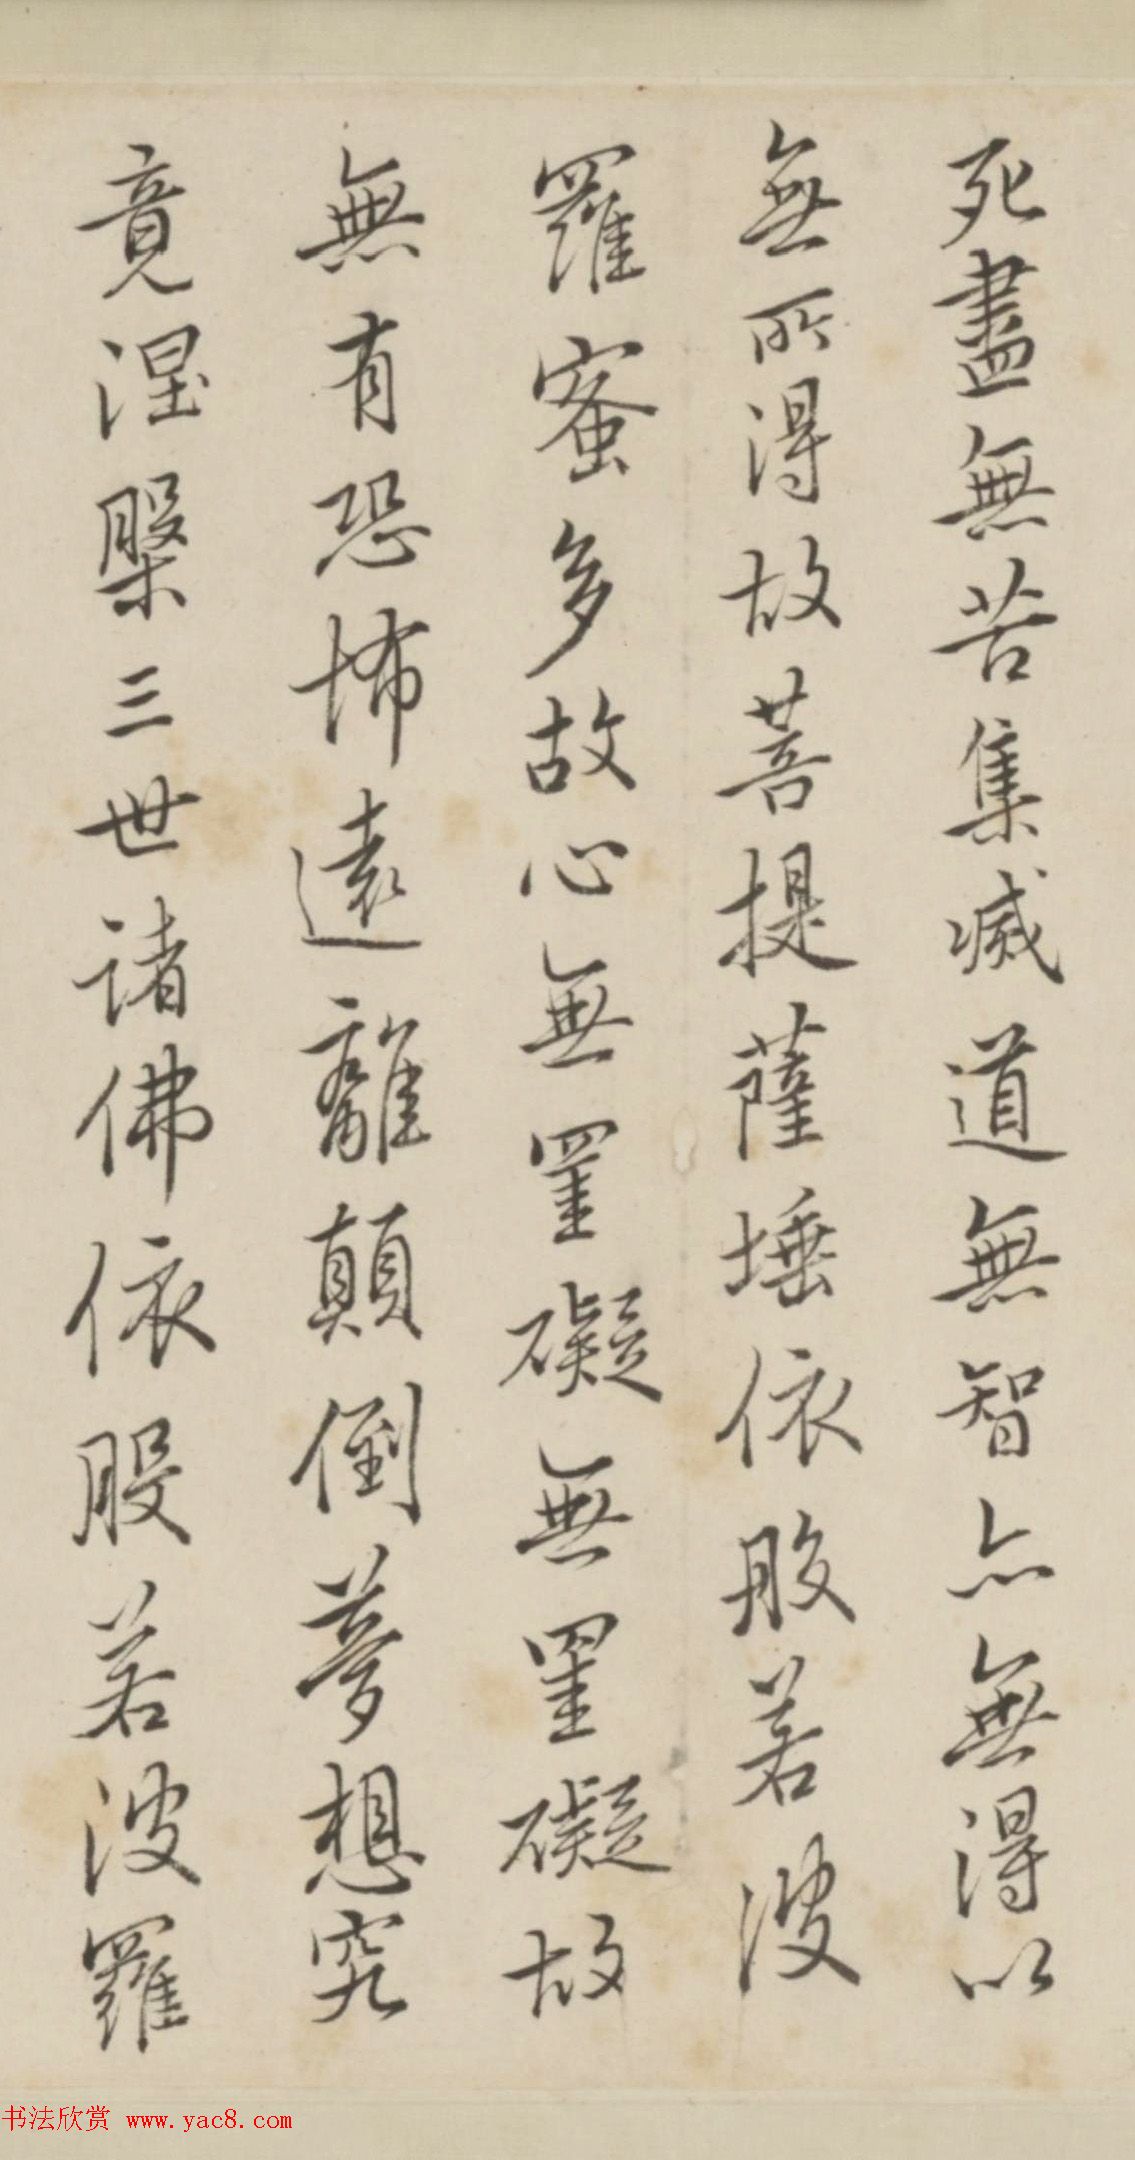 死盡無苦集滅道無智亦無得以
無所得故菩提薩埵依般若波
羅蜜多故心無罣礙無罣礙故
無有恐怖遠離顛倒夢想究
竟涅槃三世諸佛依般若波羅
书法欣赏 www.yac8.com